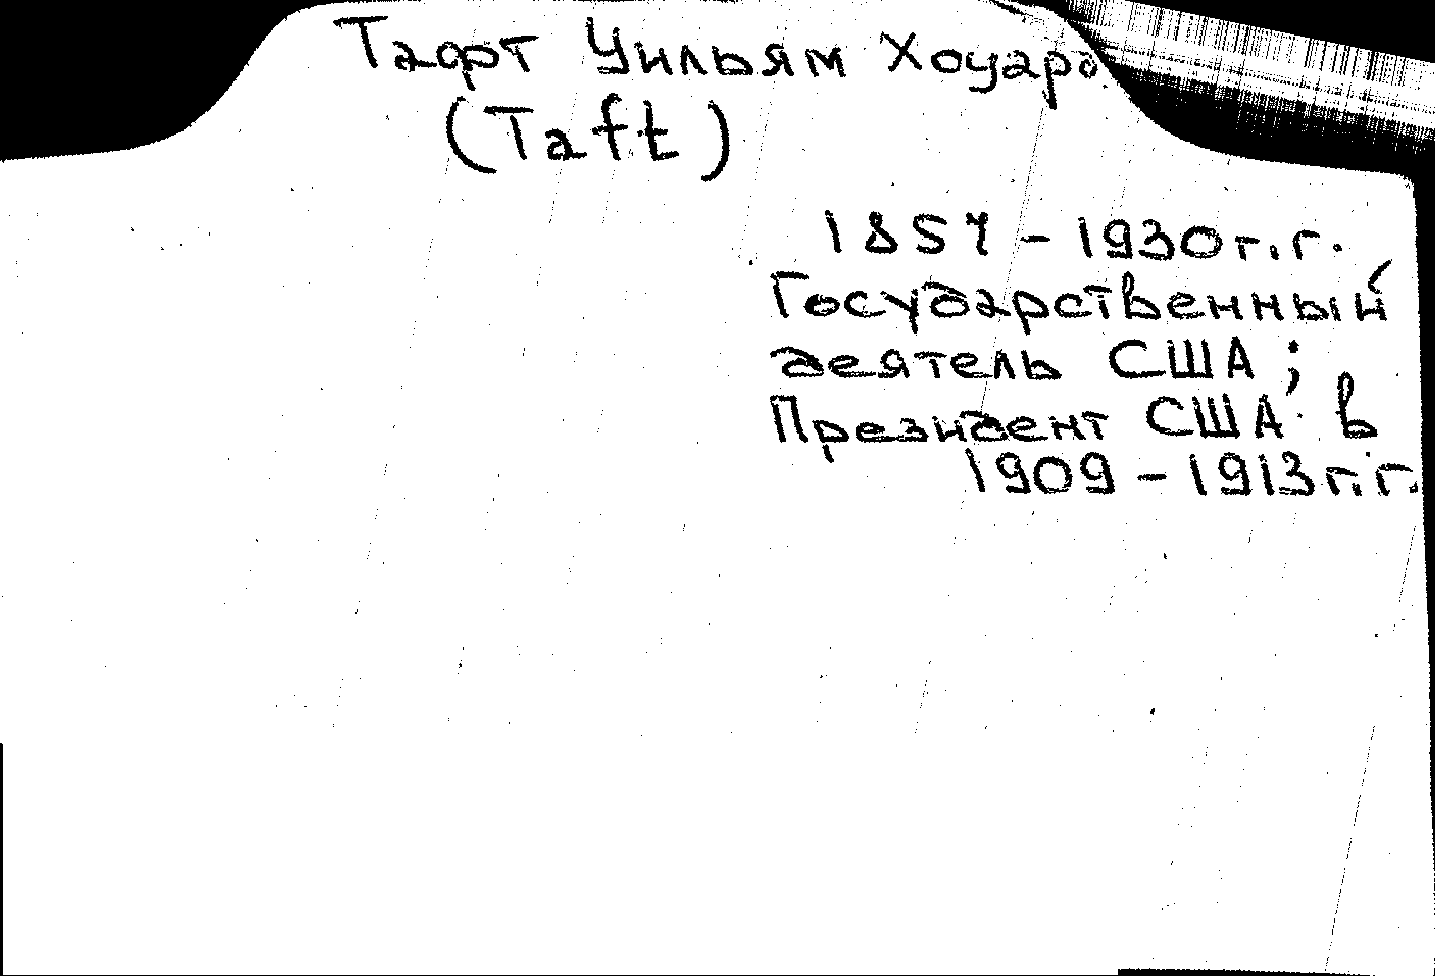 Тафт Уильям Хоуард
(Taft)
1857 - 1930 г.г.
Государственный
деятель США;
Президент США в
1909 - 1913 г.г.